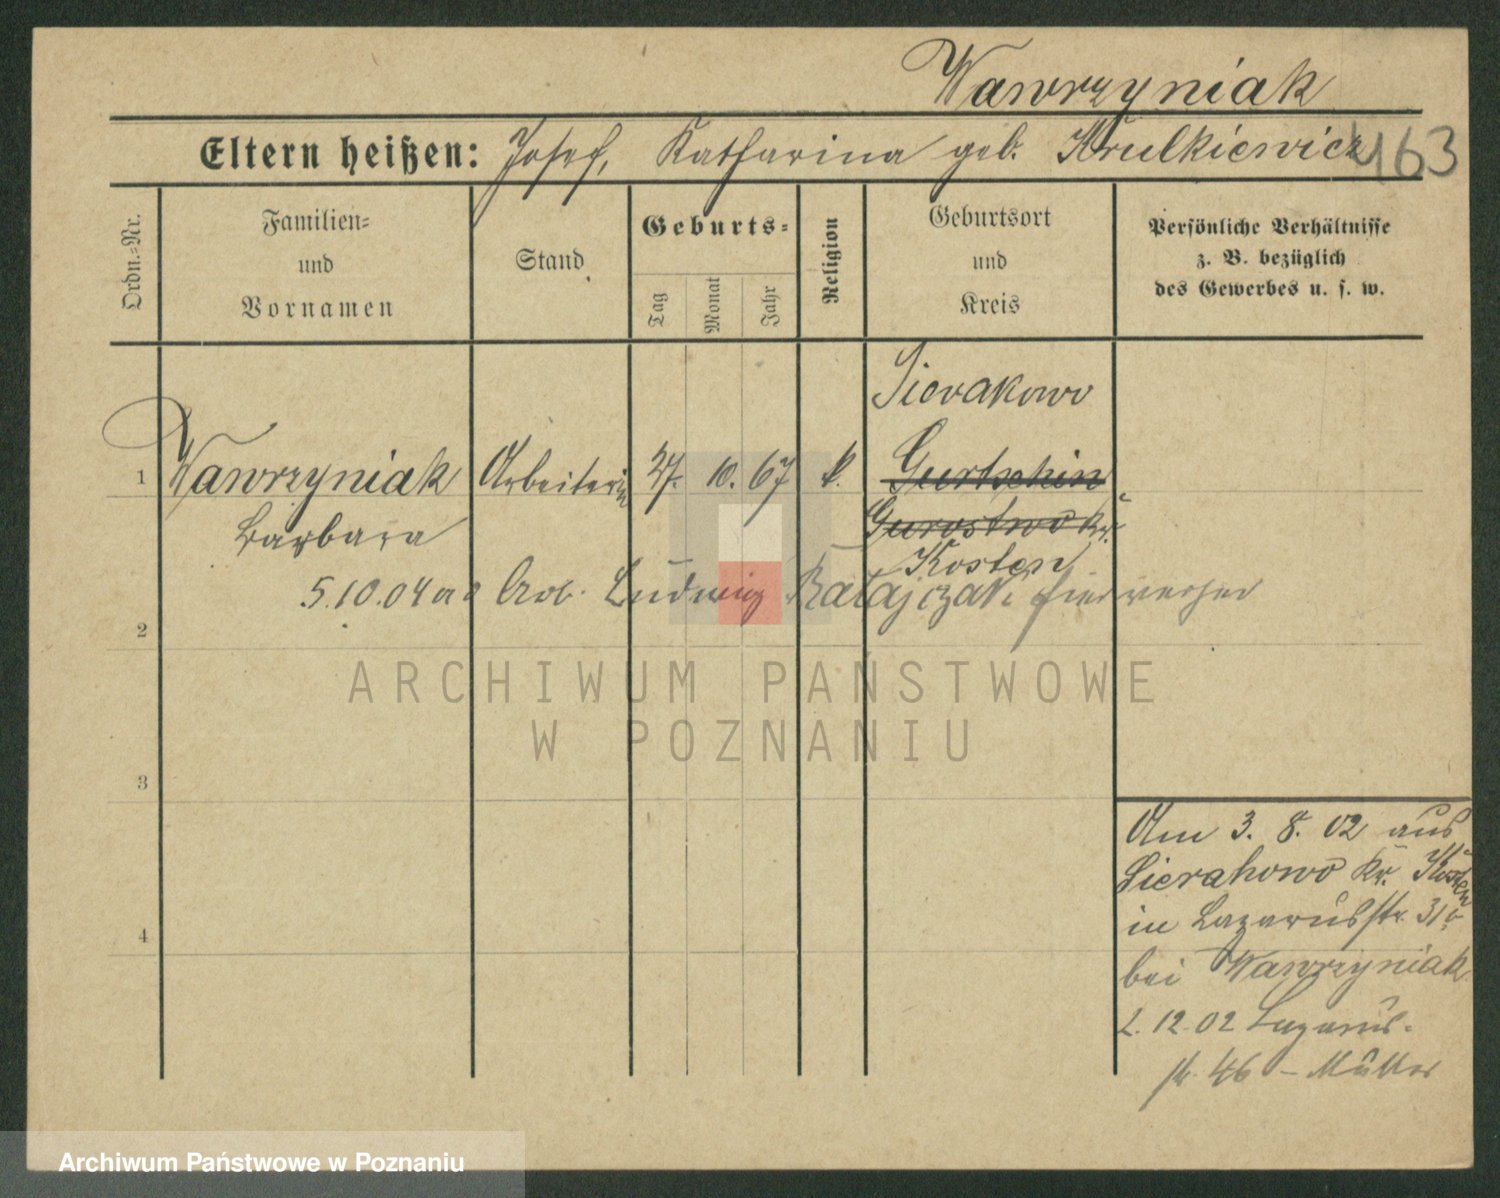 Wawrzyniak
Eltern heißen: Josef, Katharina geb. Krulkiewicz 463
Ordn.-Nr.
Familien-
und
Vornamen
Stand
Geburts-
Tag
Monat
Jahr
Religion
Geburtsort
und
Kreis
Persönliche Verhältnisse
z. B. bezüglich
des Gewerbes u. s. w.
Sierakowo
1 Wawrzyniak Arbeiterin 27. 10. 67 k. Gurtschin
Gurostwo Kr.
Barbara
Kosten
5.10.04 Arb. Ludwig Ratajczak hier
2
ARCHIWUM PAŃSTWOWE
W POZNANIU
3
Am 3. 8. 02 aus
Sierakowo Kr. Kosten
4
in Lazarusstr. 31
bei Wawrzyniak
2. 12. 02 Lazarus-
str. 46 – Müller
Archiwum Państwowe w Poznaniu